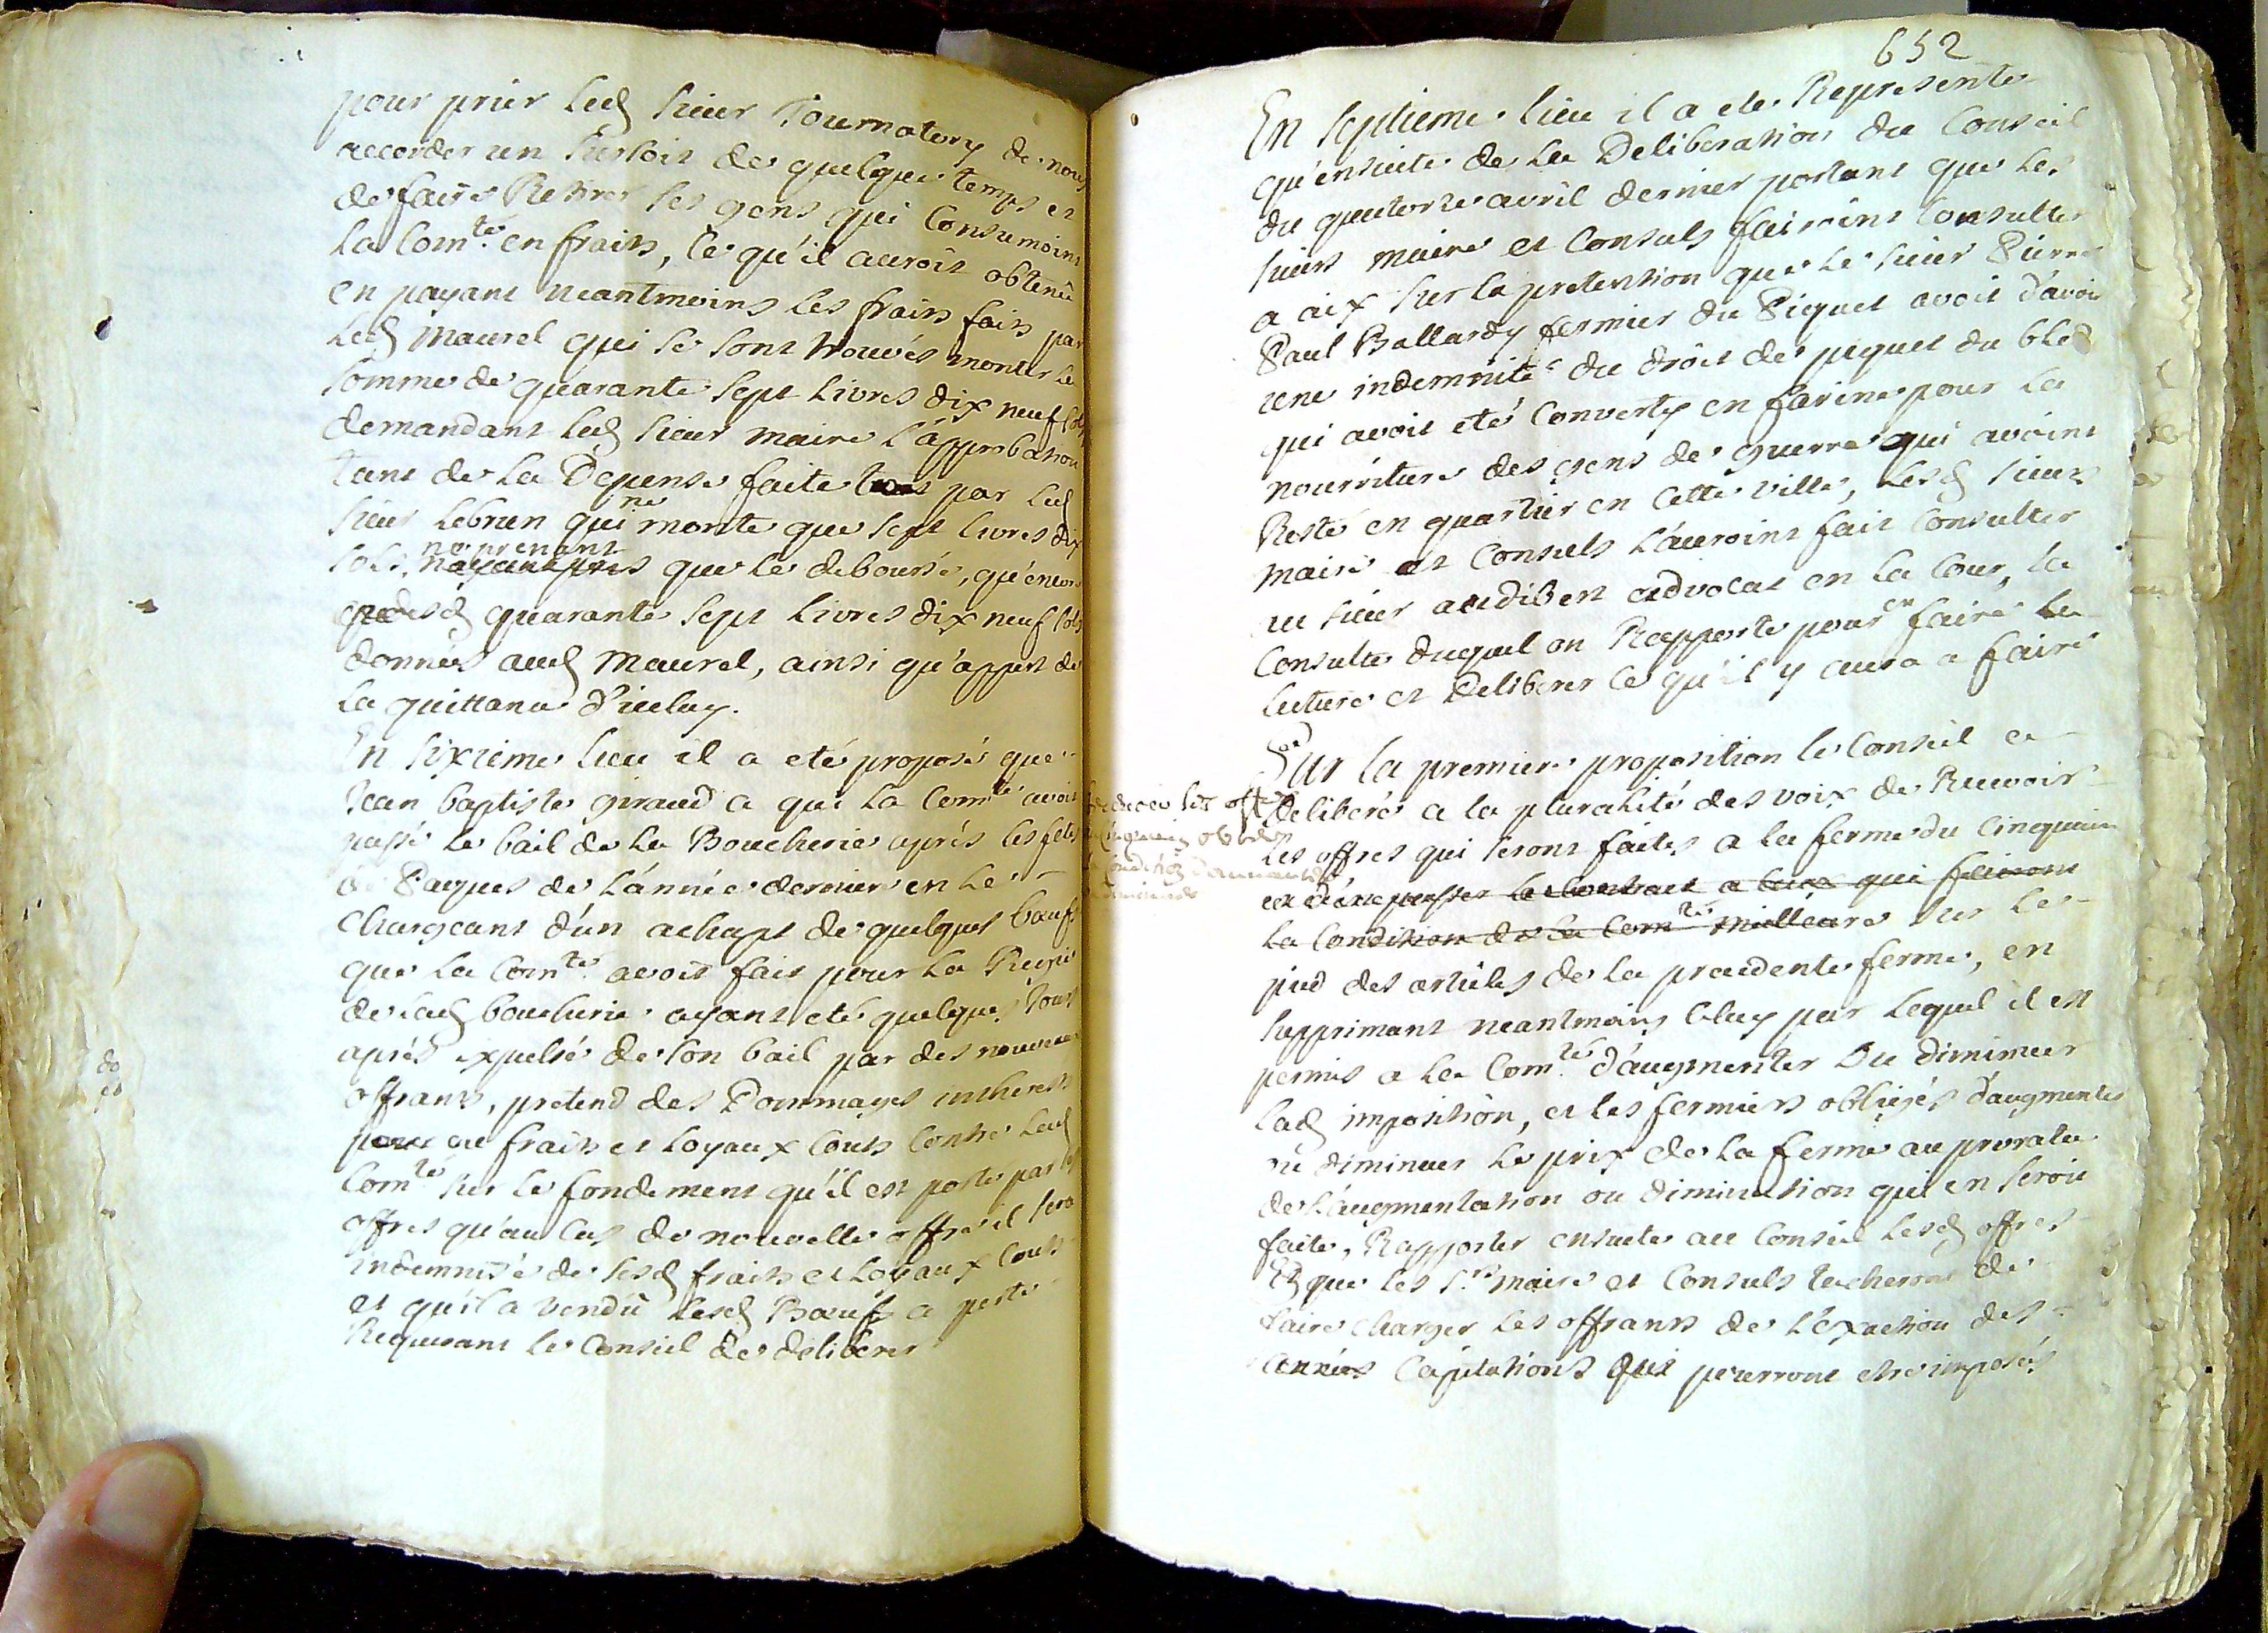 pour prier led sieur Tournatory de nous
accorder un sursoit de quelque temps et
de faire Retirer les gens qui Consumoint
la Com.té en frais, Ce qu'il auroit obtenu
en payant neantmoins les frais fais par
led Maurel qui se sont trouvés monter la
somme de quarante sept Livres dix neuf sols
demandant led sieur maire l'approbation
tant de la Depense faite par led
sieur Lebrun qui ne monte que sept livres dix
sols ne prenant que le deboursé, qu'encore
desd quarante sept Livres dix neuf sols
donnés aud Maurel, ainsi qu'appert de
la quittance d'iceluy.
En sixieme lieu il a eté proposé que
Jean baptiste giraud a qui la Comté avoit
passé le bail de la Boucherie aprés les fetes
de Paques de l'année derniere en le
chargeant d'un achapt de quelques bœufs
que la Com.té avoit fait pour la Regie
de lad boucherie ayant eté quelques Jours
aprés expulsé de son bail par des nouveaux
offrans, pretend des Dommages intherets
frais et loyaux Couts Contre lad
Com.té sur le fondement qu'il est porté par les
offres qu'au Cas de nouvelle offre il sera
indemnisé de sesd frais et Loyaux Couts
et qu'il a vendu lesd Bœufs a perte
Requerant le Conseil de deliberer
652
En septieme lieu il a eté Representé
qu'ensuite de la Deliberation du Conseil
du quatorze avril dernier portant que les
sieurs maire et Consuls fairoint Consulter
a aix sur la pretention que le sieur Pierre
Paul Ballardy fermier du Piquet avoit d'avoir
une indemnité du droit de piquet du bled
qui avoit eté Converty en farine pour la
nourriture des gens de guerre qui avoint
Resté en quartier en Cette ville, Lesd sieurs
maire et Consuls l'auroint fait Consulter
au sieur audibert advocat en la Cour, la
Consulte duquel on Rapporte pour en faire la
lecture et Deliberer Ce qu'il y aura a faire
Sur la premiere proposition le Conseil a
deliberé a la pluralité des voix de Recevoir
les offres qui seront faites a la ferme du Cinquain
passer le Contract a Ceux qui fairont
la Condition de la Com.té milleure sur le
pied des articles de la precedente ferme, en
supprimant neantmoins Celuy par lequel il est
permis a la Com.té d'augmenter Ou diminuer
lad imposition, et les fermiers obligés d'augmenter
ou diminuer le prix de la ferme au prorata
de l'augmentation ou diminution qui en seroit
faite, Rapporter ensuite au Conseil lesd offres
Et que les s.rs maire et Consuls tacheront de
faire charger les offrans de l'exaction des
Capitations qui pourront etre imposés